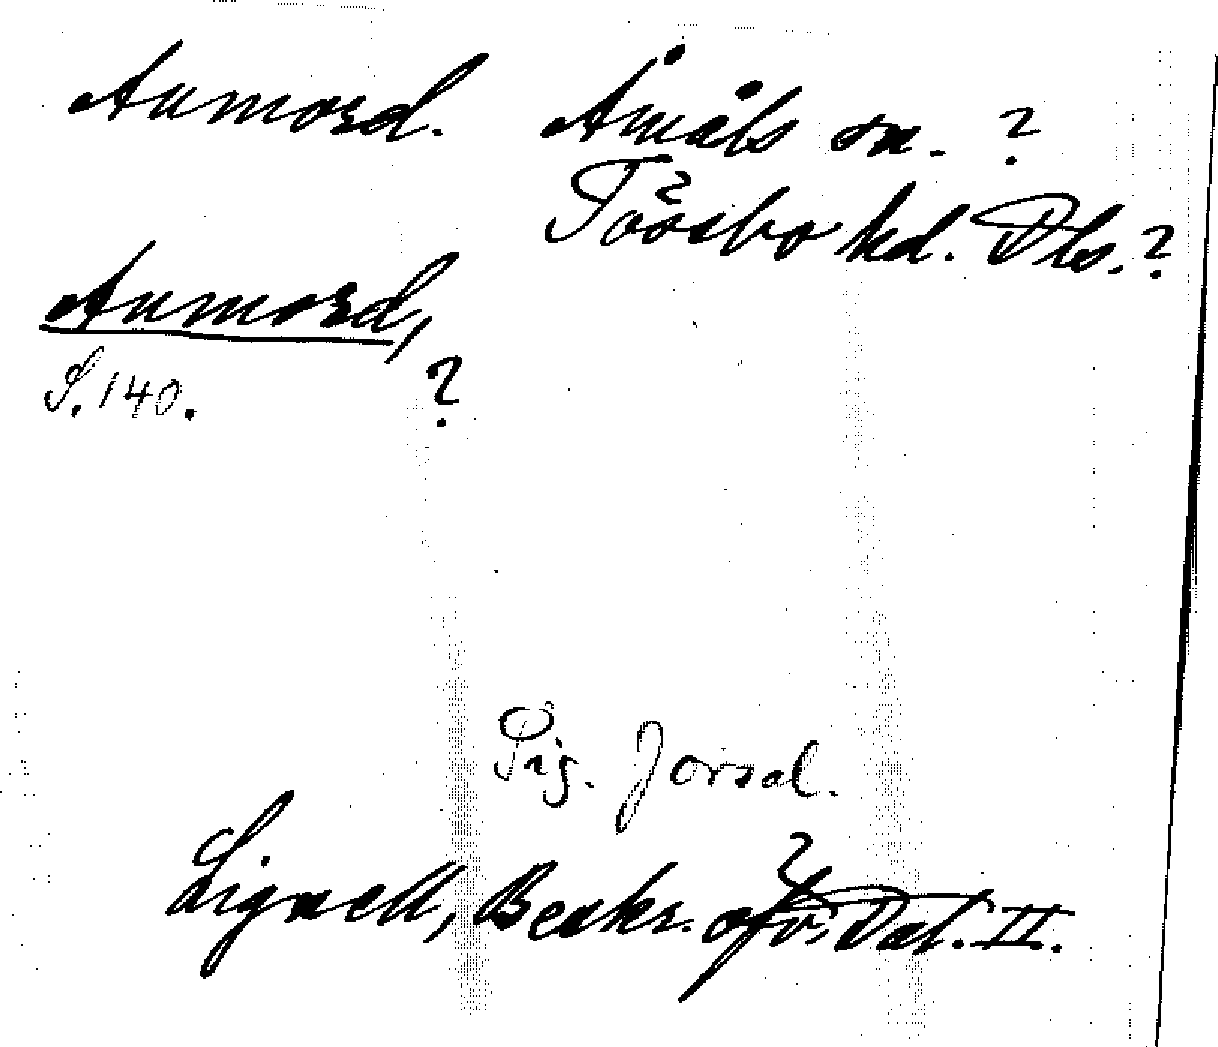 Aumord. Åmåls sn. ?
Tössbo hd. Dls. ?
Aumord,
S. 140. ?
Sig. Jorsal.
Lignell, Beskr. öfv. Dal. II.